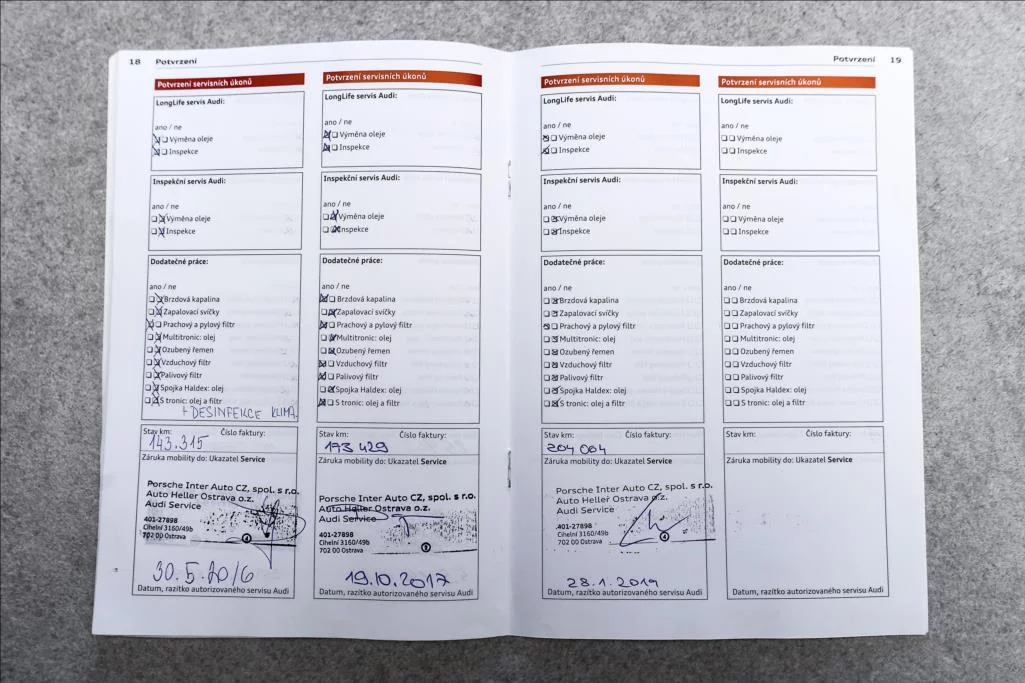 18 Potvrzení
Potvrzení servisních úkonů
LongLife servis Audi:
ano / ne
Výměna oleje
Inspekce
Inspekční servis Audi:
ano / ne
Výměna oleje
Inspekce
Dodatečné práce:
ano / ne
Brzdová kapalina
Zapalovací svíčky
Prachový a pylový filtr
Multitronic: olej
Ozubený řemen
Vzduchový filtr
Palivový filtr
Spojka Haldex: olej
S tronic: olej a filtr
+ DESINFEKCE KLIMA.
Stav km: Číslo faktury:
143.315
Záruka mobility do: Ukazatel Service
Porsche Inter Auto CZ, spol. s r.o.
Auto Heller Ostrava o.z.
Audi Service
401-27898
Cihelní 3160/49b
702 00 Ostrava
4
30.5.2016
Datum, razítko autorizovaného servisu Audi
Potvrzení servisních úkonů
LongLife servis Audi:
ano / ne
Výměna oleje
Inspekce
Inspekční servis Audi:
ano / ne
Výměna oleje
Inspekce
Dodatečné práce:
ano / ne
Brzdová kapalina
Zapalovací svíčky
Prachový a pylový filtr
Multitronic: olej
Ozubený řemen
Vzduchový filtr
Palivový filtr
Spojka Haldex: olej
S tronic: olej a filtr
Stav km: Číslo faktury:
173 429
Záruka mobility do: Ukazatel Service
Porsche Inter Auto CZ, spol. s r.o.
Auto Heller Ostrava o.z.
Audi Service
401-27898
Cihelní 3160/49b
702 00 Ostrava
19.10.2017
Datum, razítko autorizovaného servisu Audi
Potvrzení 19
Potvrzení servisních úkonů
LongLife servis Audi:
ano / ne
Výměna oleje
Inspekce
Inspekční servis Audi:
ano / ne
Výměna oleje
Inspekce
Dodatečné práce:
ano / ne
Brzdová kapalina
Zapalovací svíčky
Prachový a pylový filtr
Multitronic: olej
Ozubený řemen
Vzduchový filtr
Palivový filtr
Spojka Haldex: olej
S tronic: olej a filtr
Stav km: Číslo faktury:
204 004
Záruka mobility do: Ukazatel Service
Porsche Inter Auto CZ, spol. s r.o.
Auto Heller Ostrava o.z.
Audi Service
401-27898
Cihelní 3160/49b
702 00 Ostrava
4
28.1.2019
Datum, razítko autorizovaného servisu Audi
Potvrzení servisních úkonů
LongLife servis Audi:
ano / ne
Výměna oleje
Inspekce
Inspekční servis Audi:
ano / ne
Výměna oleje
Inspekce
Dodatečné práce:
ano / ne
Brzdová kapalina
Zapalovací svíčky
Prachový a pylový filtr
Multitronic: olej
Ozubený řemen
Vzduchový filtr
Palivový filtr
Spojka Haldex: olej
S tronic: olej a filtr
Stav km: Číslo faktury:
Záruka mobility do: Ukazatel Service
Datum, razítko autorizovaného servisu Audi